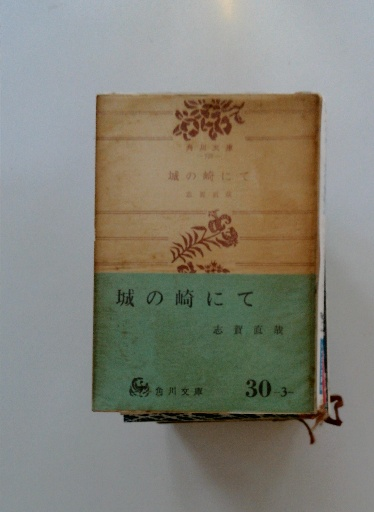 角川文庫
城の崎にて
志賀直哉
城の崎にて
志賀直哉
角川文庫 30-3-